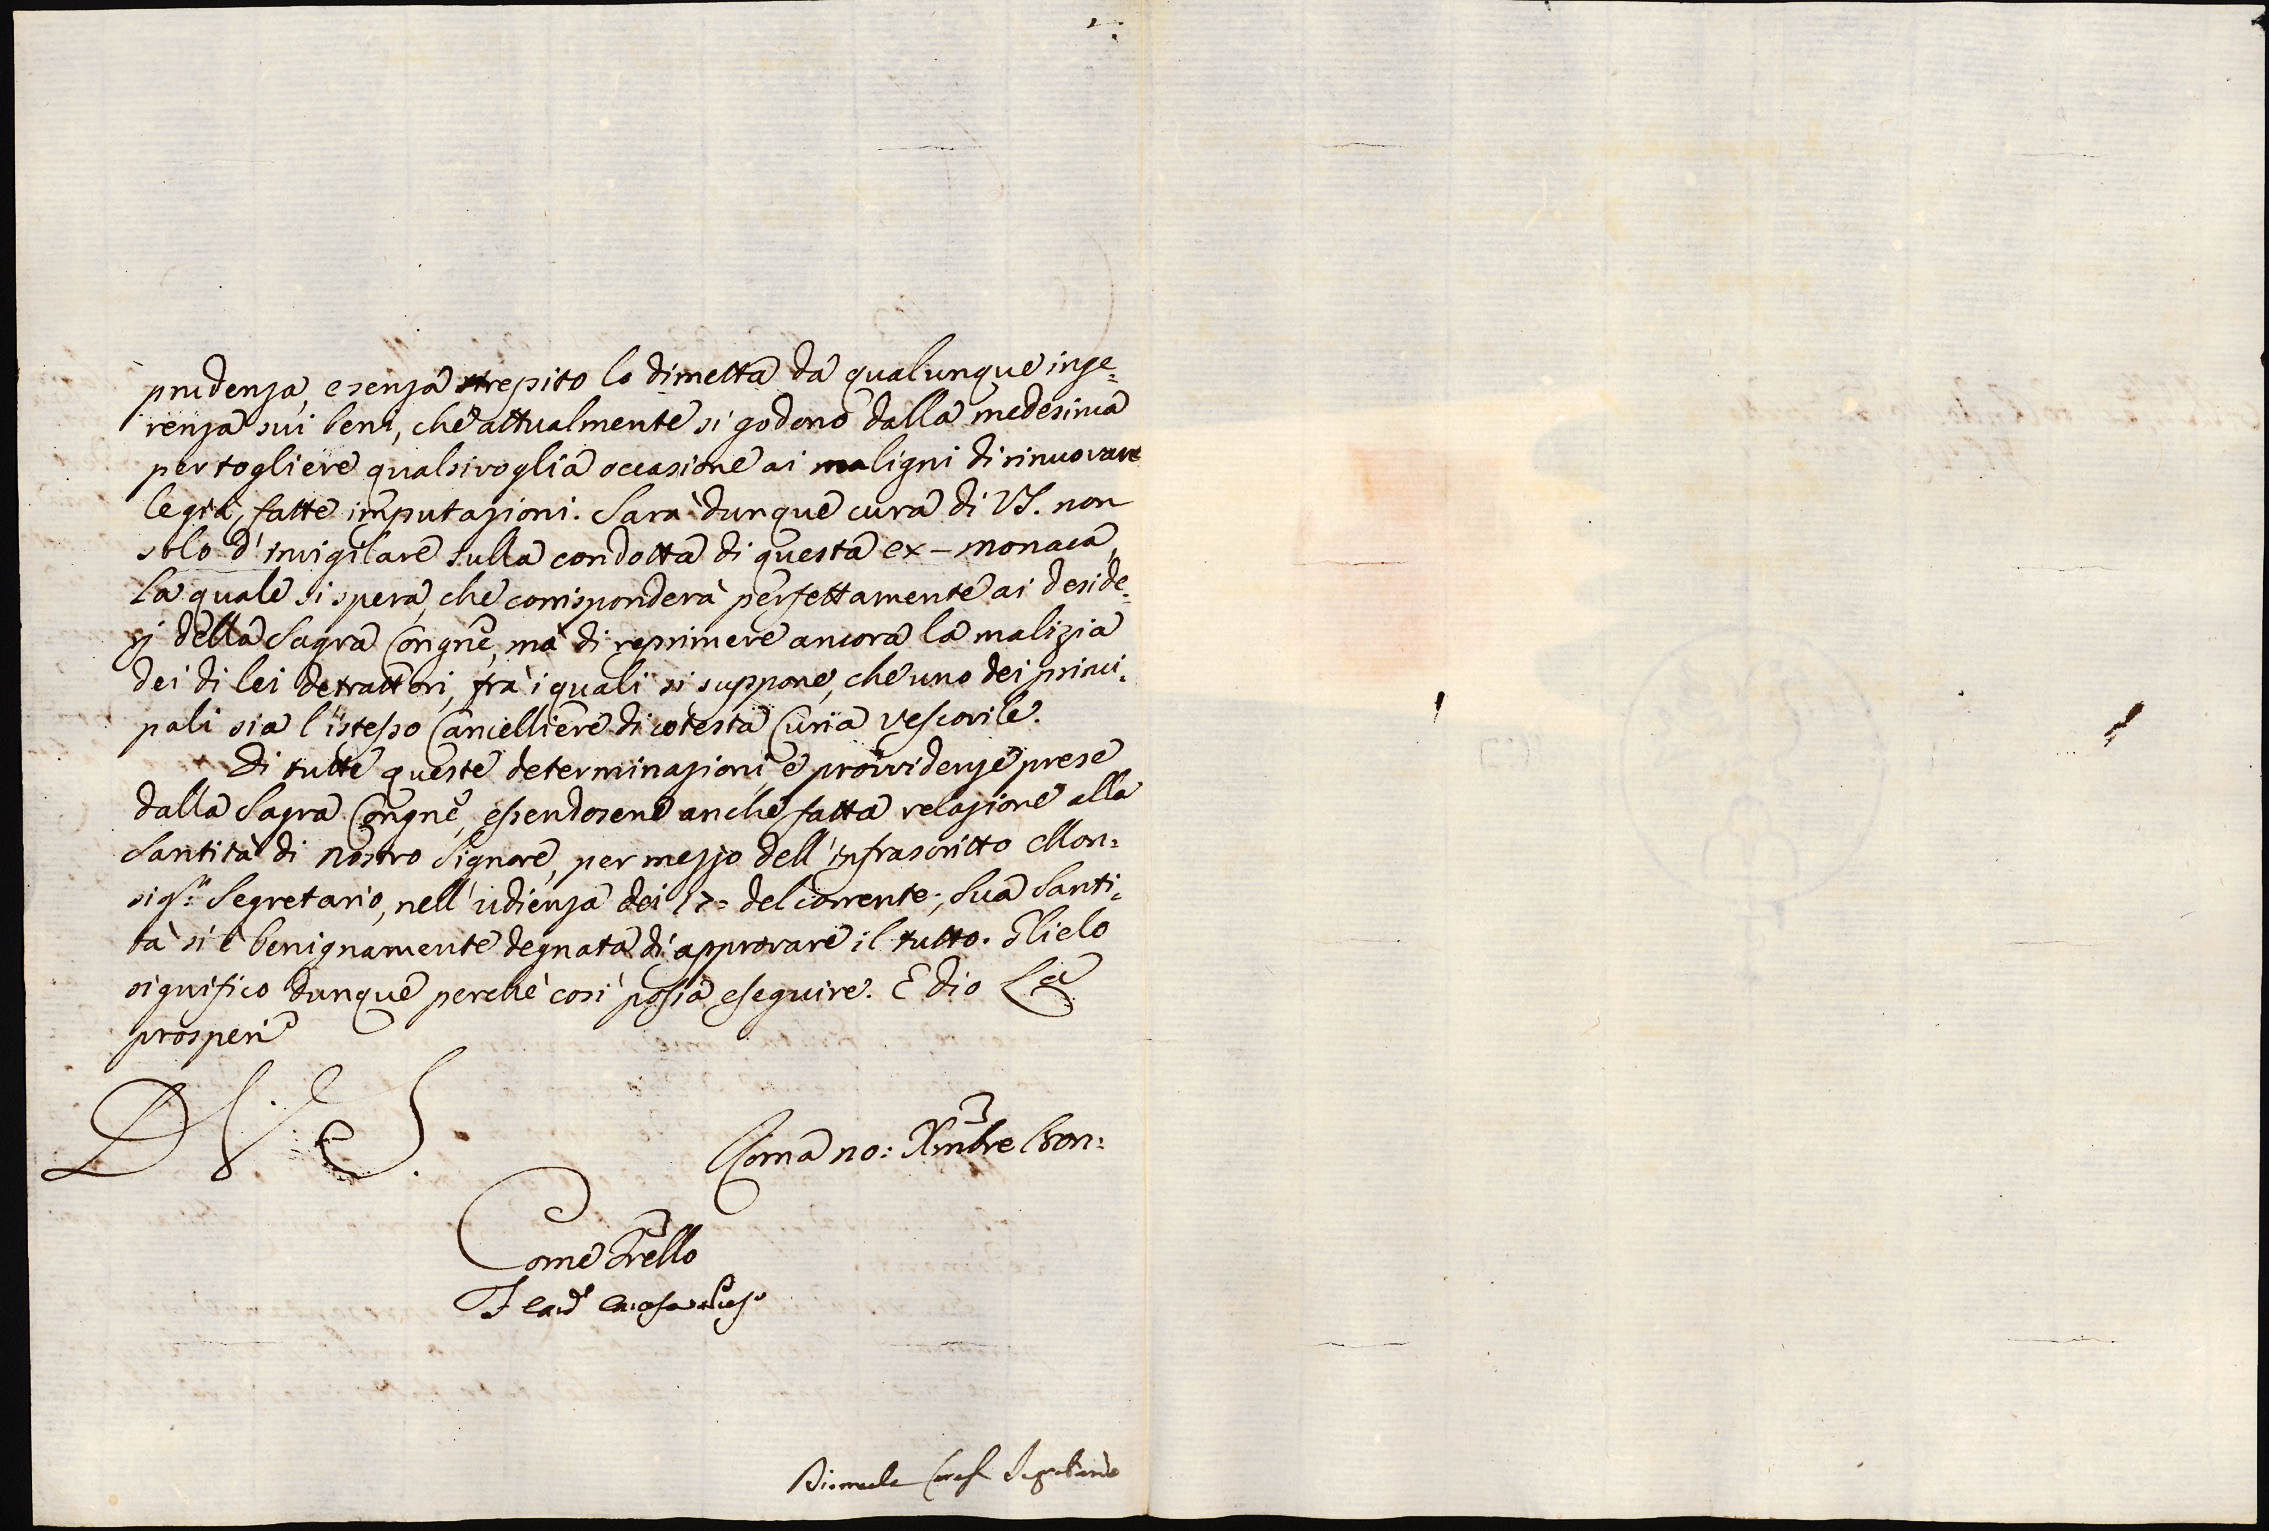 prudenza, e senza strepito lo dimetta da qualunque inge=
renza sui beni, che attualmente si godono dalla medesima
per togliere qualsivoglia occasione ai maligni di rinuovare
le già fatte imputazioni. Sarà dunque cura di VS. non
solo d'invigilare sulla condotta di questa ex-monaca,
la quale si spera, che corrisponderà perfettamente ai deside=
rj della Sagra Congne, mà di reprimere ancora la malizia
dei di lei detrattori, frà i quali si suppone, che uno dei princi=
pali sia l'istesso Cancelliere di cotesta Curia Vescovile.
Di tutte queste determinazioni, e provvidenze prese
dalla Sagra Congne, essendosene anche fatta relazione alla
Santità di Nostro Signore, per mezzo dell'infrascritto Mon=
sigr: Segretario, nell'udienza dei del corrente; Sua Santi=
tà si è benignamente degnata di approvare il tutto. Glielo
significo dunque perchè così possa eseguire. E Dio La
prosperi
D V S.
Roma Xmbre
Come Frello
Card
Segretario